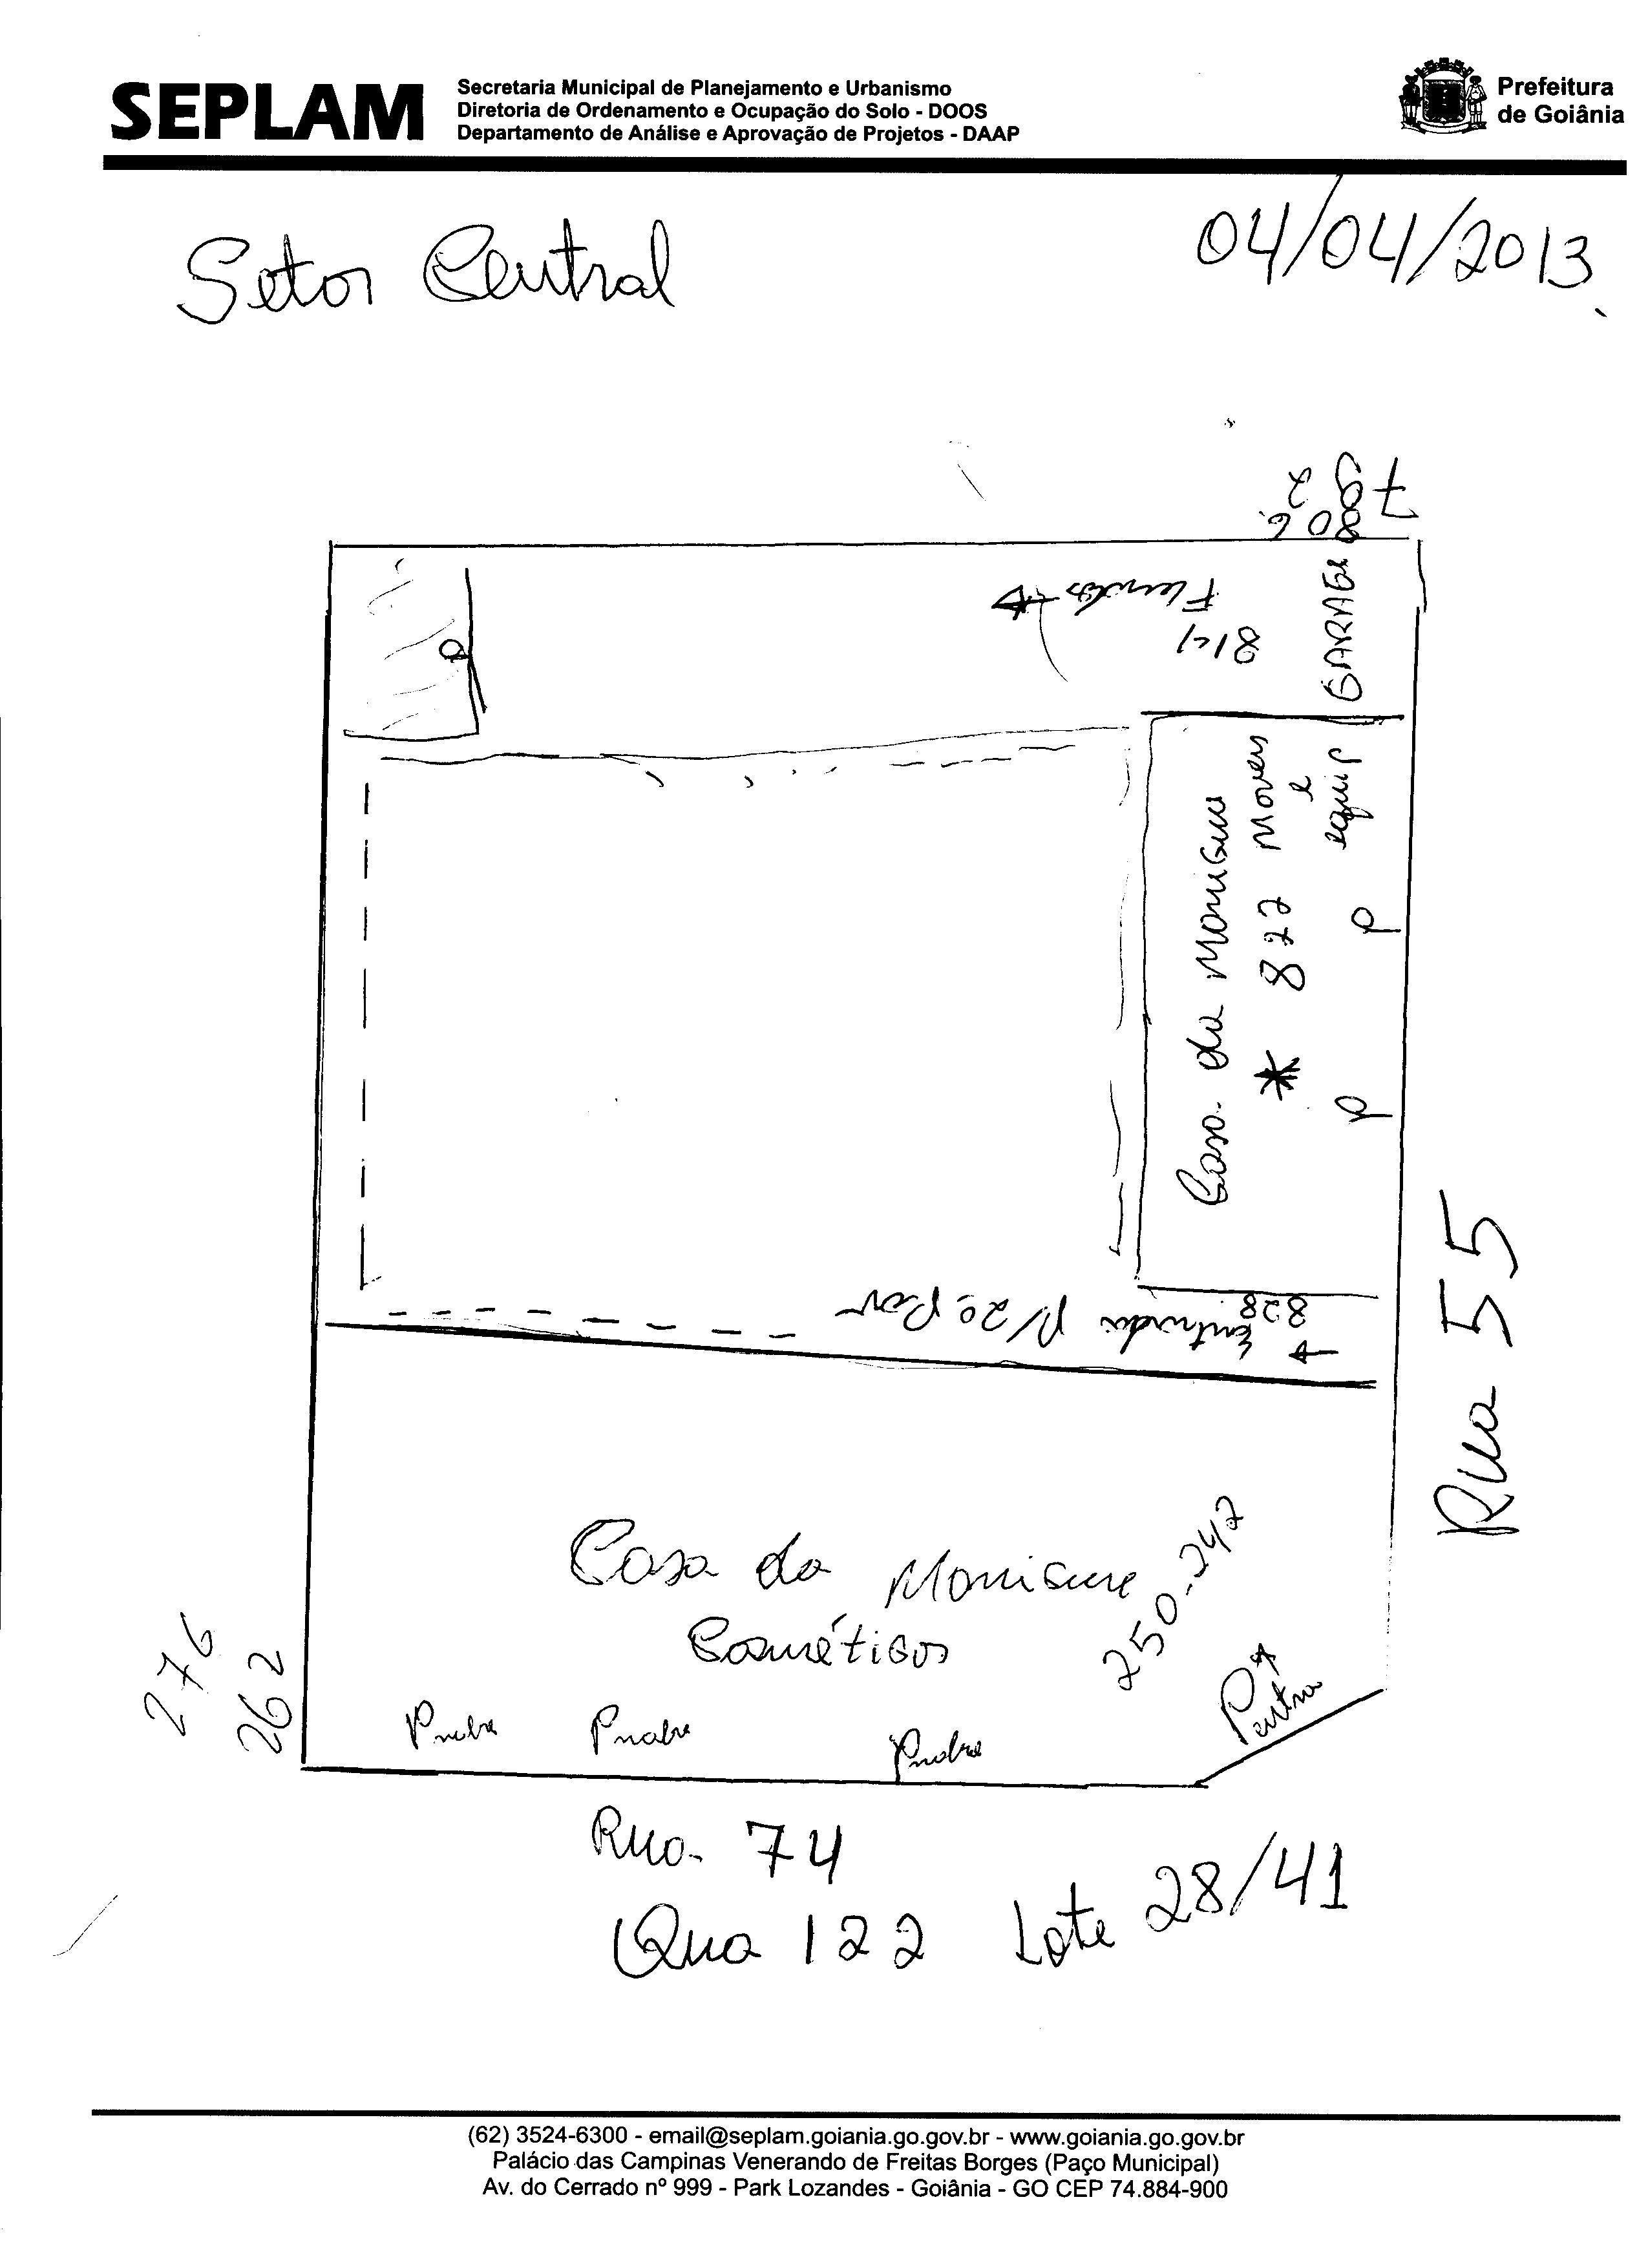 SEPLAM
Secretaria Municipal de Planejamento e Urbanismo
Diretoria de Ordenamento e Ocupação do Solo - DOOS
Departamento de Análise e Aprovação de Projetos - DAAP
Prefeitura
de Goiânia
Setor Central
04/04/2013
Fundos
814
GARAGE
Casa da Manicure
* 822 Moveis
e
equip
P P
Entrada p/ 2º Pav
828
Rua 55
Casa da Manicure
Cosméticos
250-242
276
262
P entra
Rua 74
Qua 122 Lote 28/41
(62) 3524-6300 - email@seplam.goiania.go.gov.br - www.goiania.go.gov.br
Palácio das Campinas Venerando de Freitas Borges (Paço Municipal)
Av. do Cerrado nº 999 - Park Lozandes - Goiânia - GO CEP 74.884-900